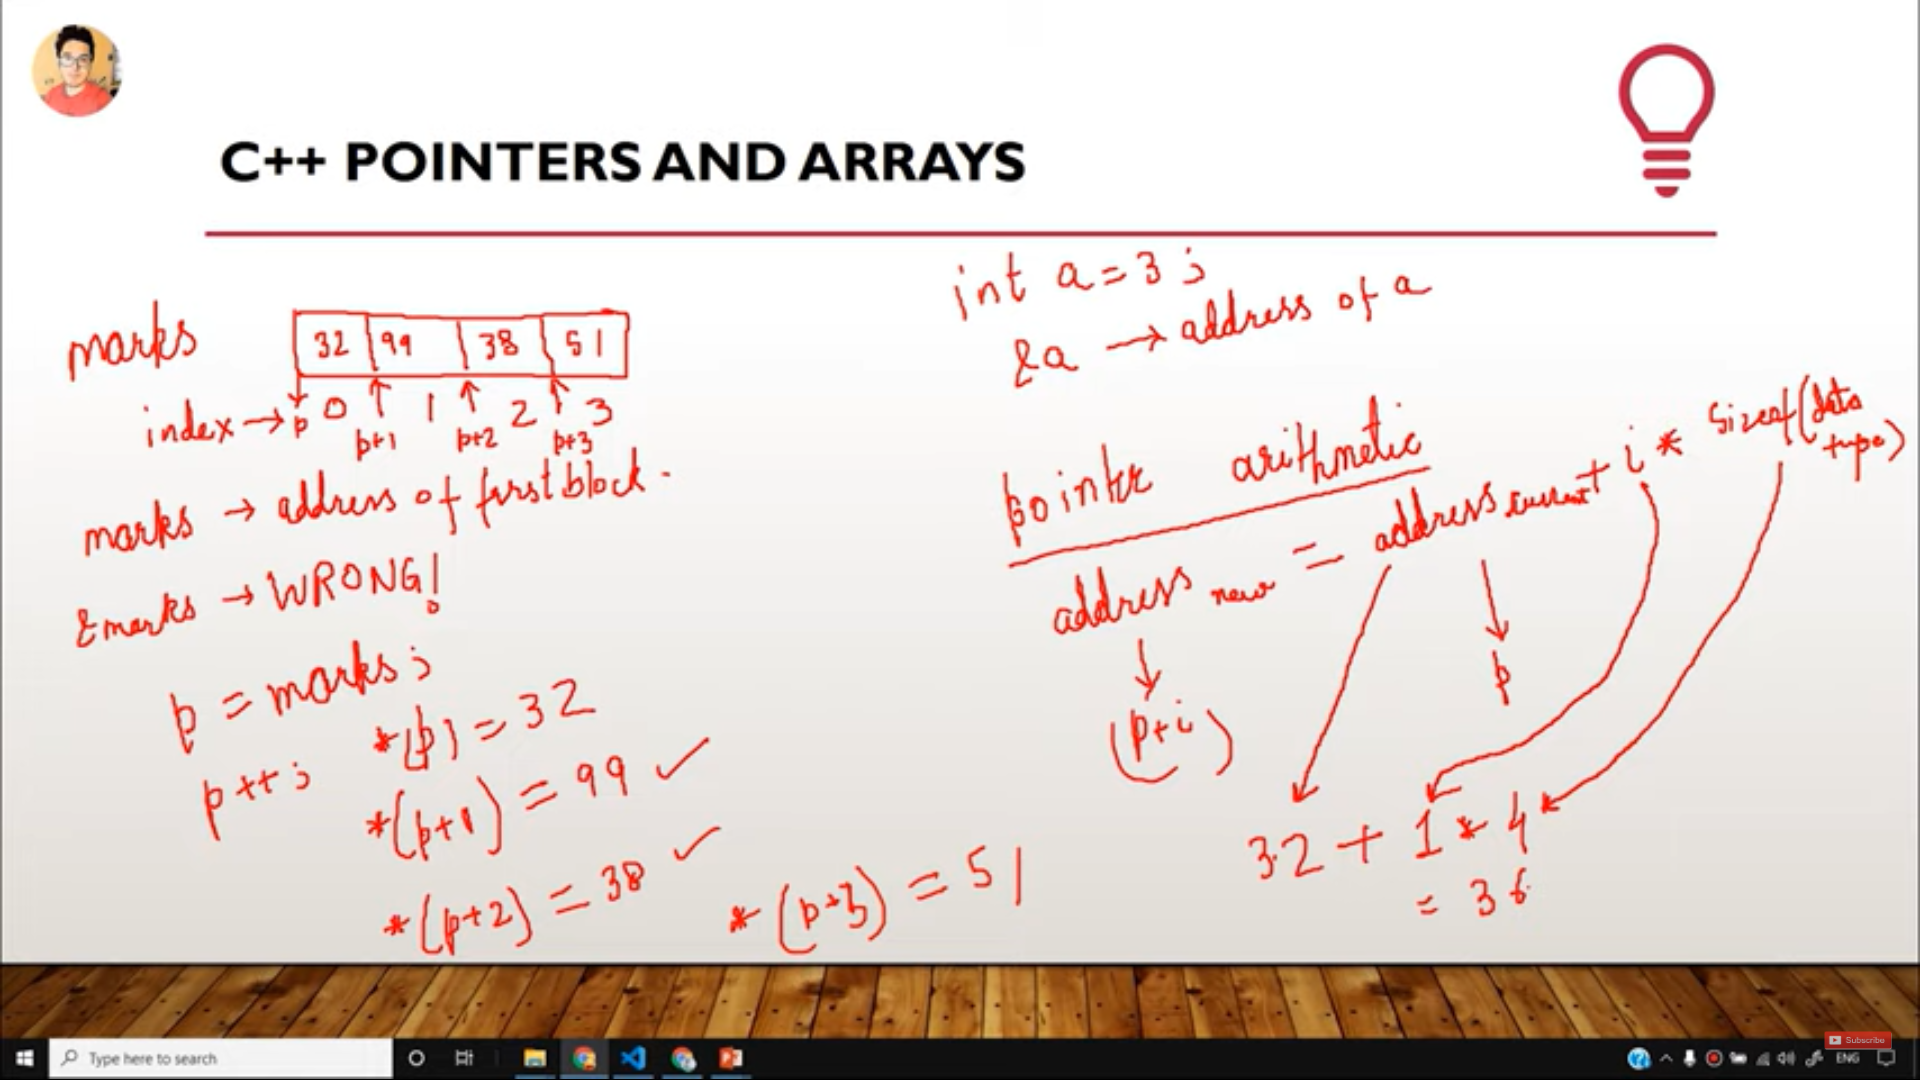 C++ POINTERS AND ARRAYS
marks
32 99 38 51
index → p 0 1 2 3
p+1 p+2 p+3
marks → address of first block.
&marks → WRONG!
p = marks;
p++;
*(p) = 32
*(p+1) = 99 ✓
*(p+2) = 38 ✓
*(p+3) = 51
int a = 3;
&a → address of a
pointer arithmetic
address new = address current + i * sizeof(data type)
(p+i)
p
32 + 1 * 4
= 36
Type here to search
Subscribe
ENG